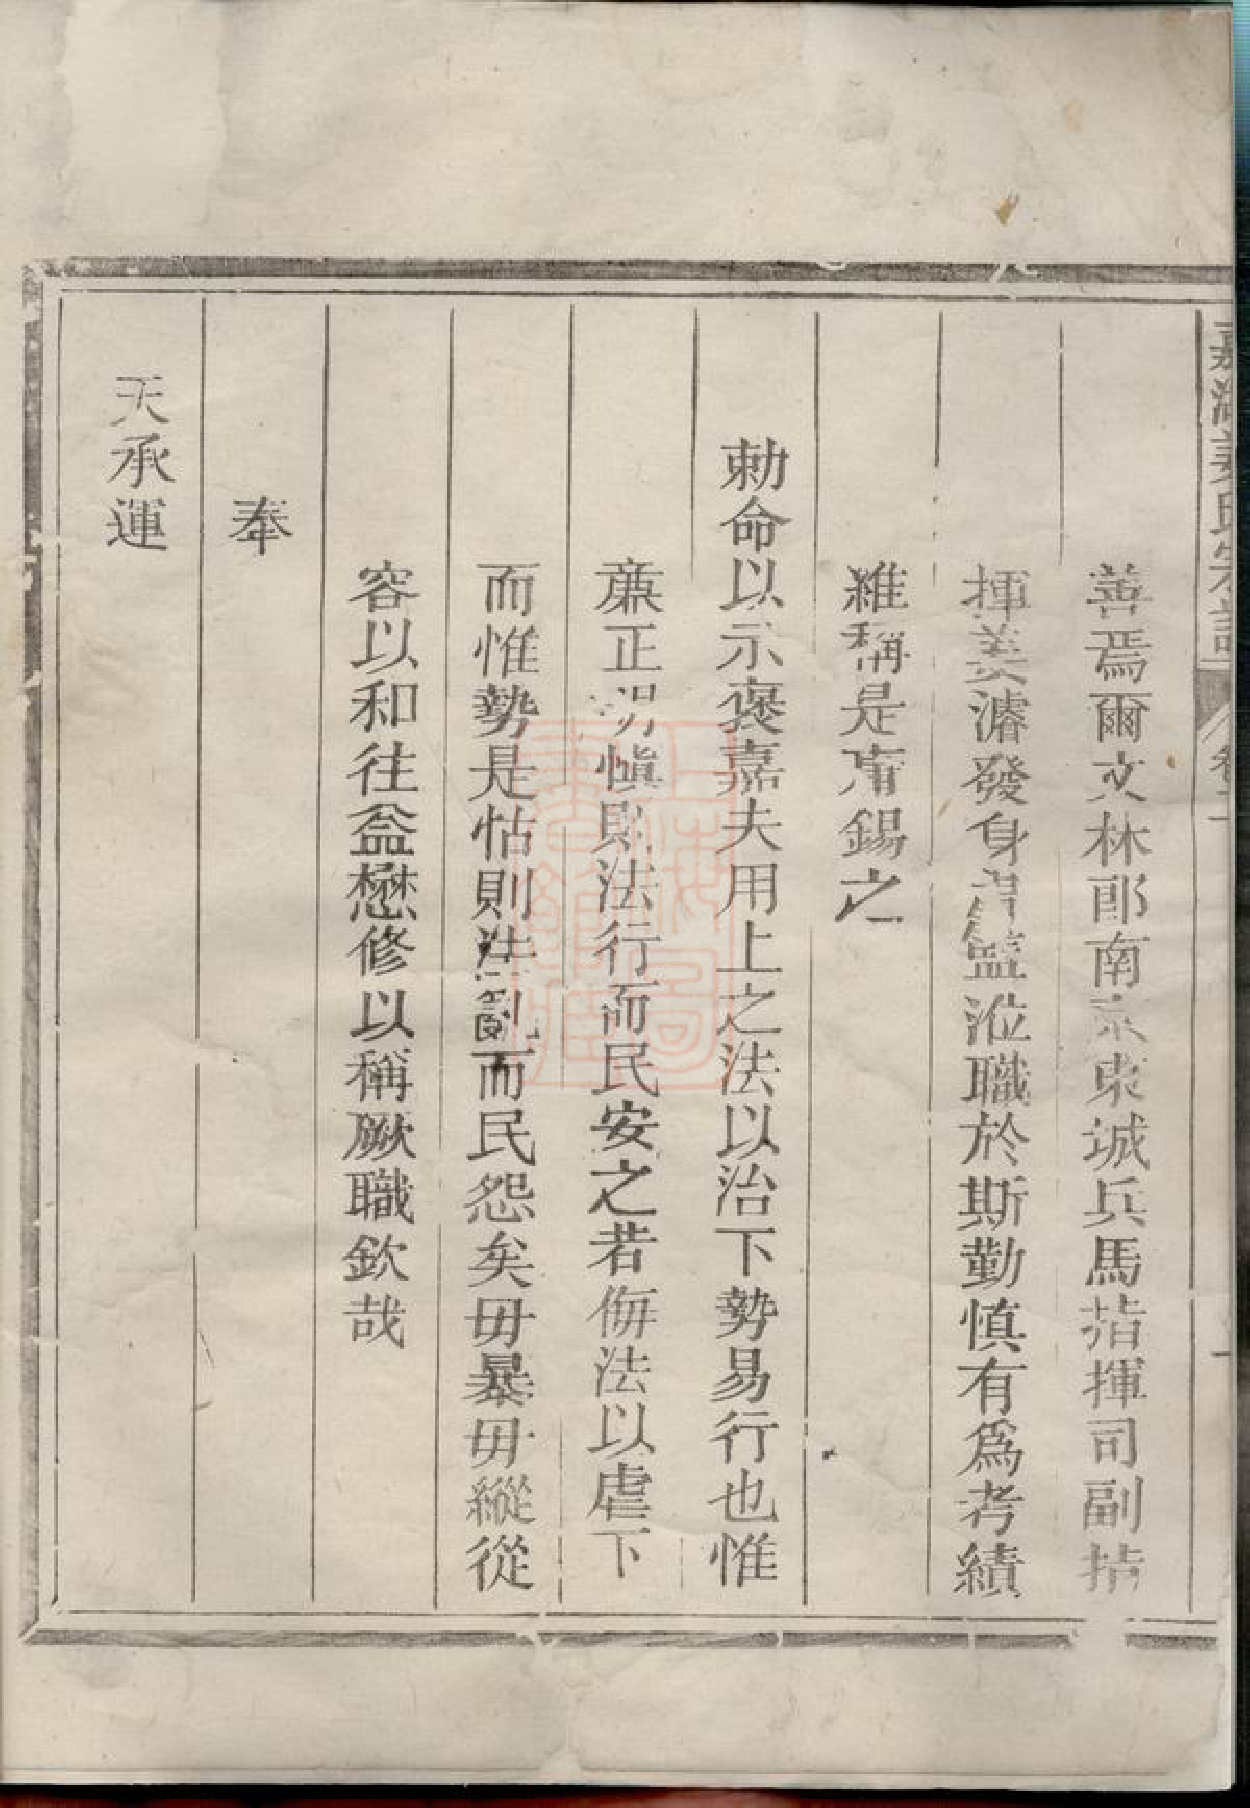 善焉爾文林郎南京東城兵馬指揮司副指
揮姜濬發身胄監涖職於斯勤慎有爲考績
維稱是用錫之
勅命以示褒嘉夫用上之法以治下勢易行也惟
廉正明慎則法行而民安之若侮法以虐下
而惟勢是怙則法亂而民怨矣毋暴毋縱從
容以和往益懋修以稱厥職欽哉
奉
天承運